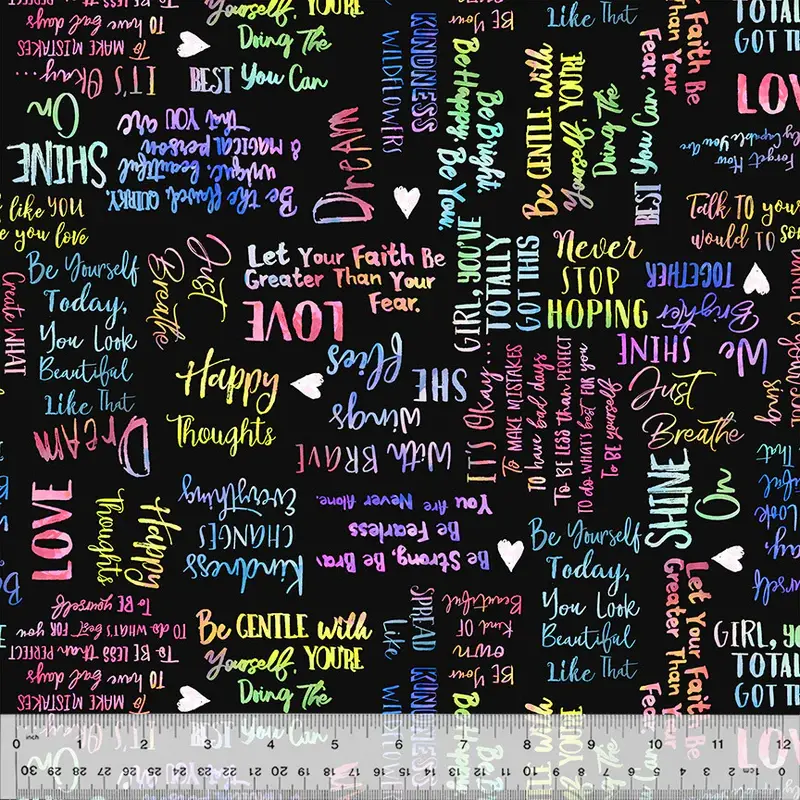 Yourself, YOU'RE
Doing The
BEST You Can
TO have bad days
TO MAKE MISTAKES
IT'S Okay...
SHINE
On
Be the flawed, QUIRKY,
unique, beautiful
& magical person
that YOU are
DREAM
WILDFLOWERS
KINDNESS
BE Your
Be Bright.
Be Happy. Be You.
Be GENTLE with
Yourself, YOU'RE
Doing The
BEST You Can
Like That
Faith Be
Than Your
Fear.
TOTAL
GOT T
LOV
Forget How
Capable You Are
like YOU
you love
Be Yourself
Today,
You Look
Beautiful
Like That
Create WHAT
Just
Breathe
Let Your Faith Be
Greater Than Your
Fear.
LOVE
GIRL, YOU'VE
TOTALLY
GOT THIS
Never
STOP
HOPING
Talk TO your
would TO so
We
SHINE
Brighter
TOGETHER
Happy
Thoughts
SHE
flies
With BRAVE
Wings
IT'S Okay...
TO MAKE MISTAKES
TO have bad days
TO BE LESS than PERFECT
TO do WHAT'S best FOR you
TO BE yourself
Just
Breathe
sing
DREAM
LOVE
Happy
Thoughts
Kindness
CHANGES
Everything
Be Strong, Be Brav
Be Fearless
You Are Never Alone.
SHINE
On
Be Yourself
Today,
You Look
Beautiful
Like That
TO BE yourself
TO do WHAT'S best FOR you
TO BE LESS than PERFECT
TO have bad days
TO MAKE MISTAKES
IT'S
On
Be GENTLE with
Yourself, YOU'RE
Doing The
BEST You Can
SPREAD
KINDNESS
Like WILDFLOWERS
BE Your
OWN
Kind OF
Beautiful
Be Happy.
Be
Let Your Faith Be
Greater Than Your
Fear
GIRL, YO
TOTAL
GOT TH
LOV
0 inch 1 2 3 4 5 6 7 8 9 10 11 12
30 29 28 27 26 25 24 23 22 21 20 19 18 17 16 15 14 13 12 11 10 9 8 7 6 5 4 3 2 1cm 0